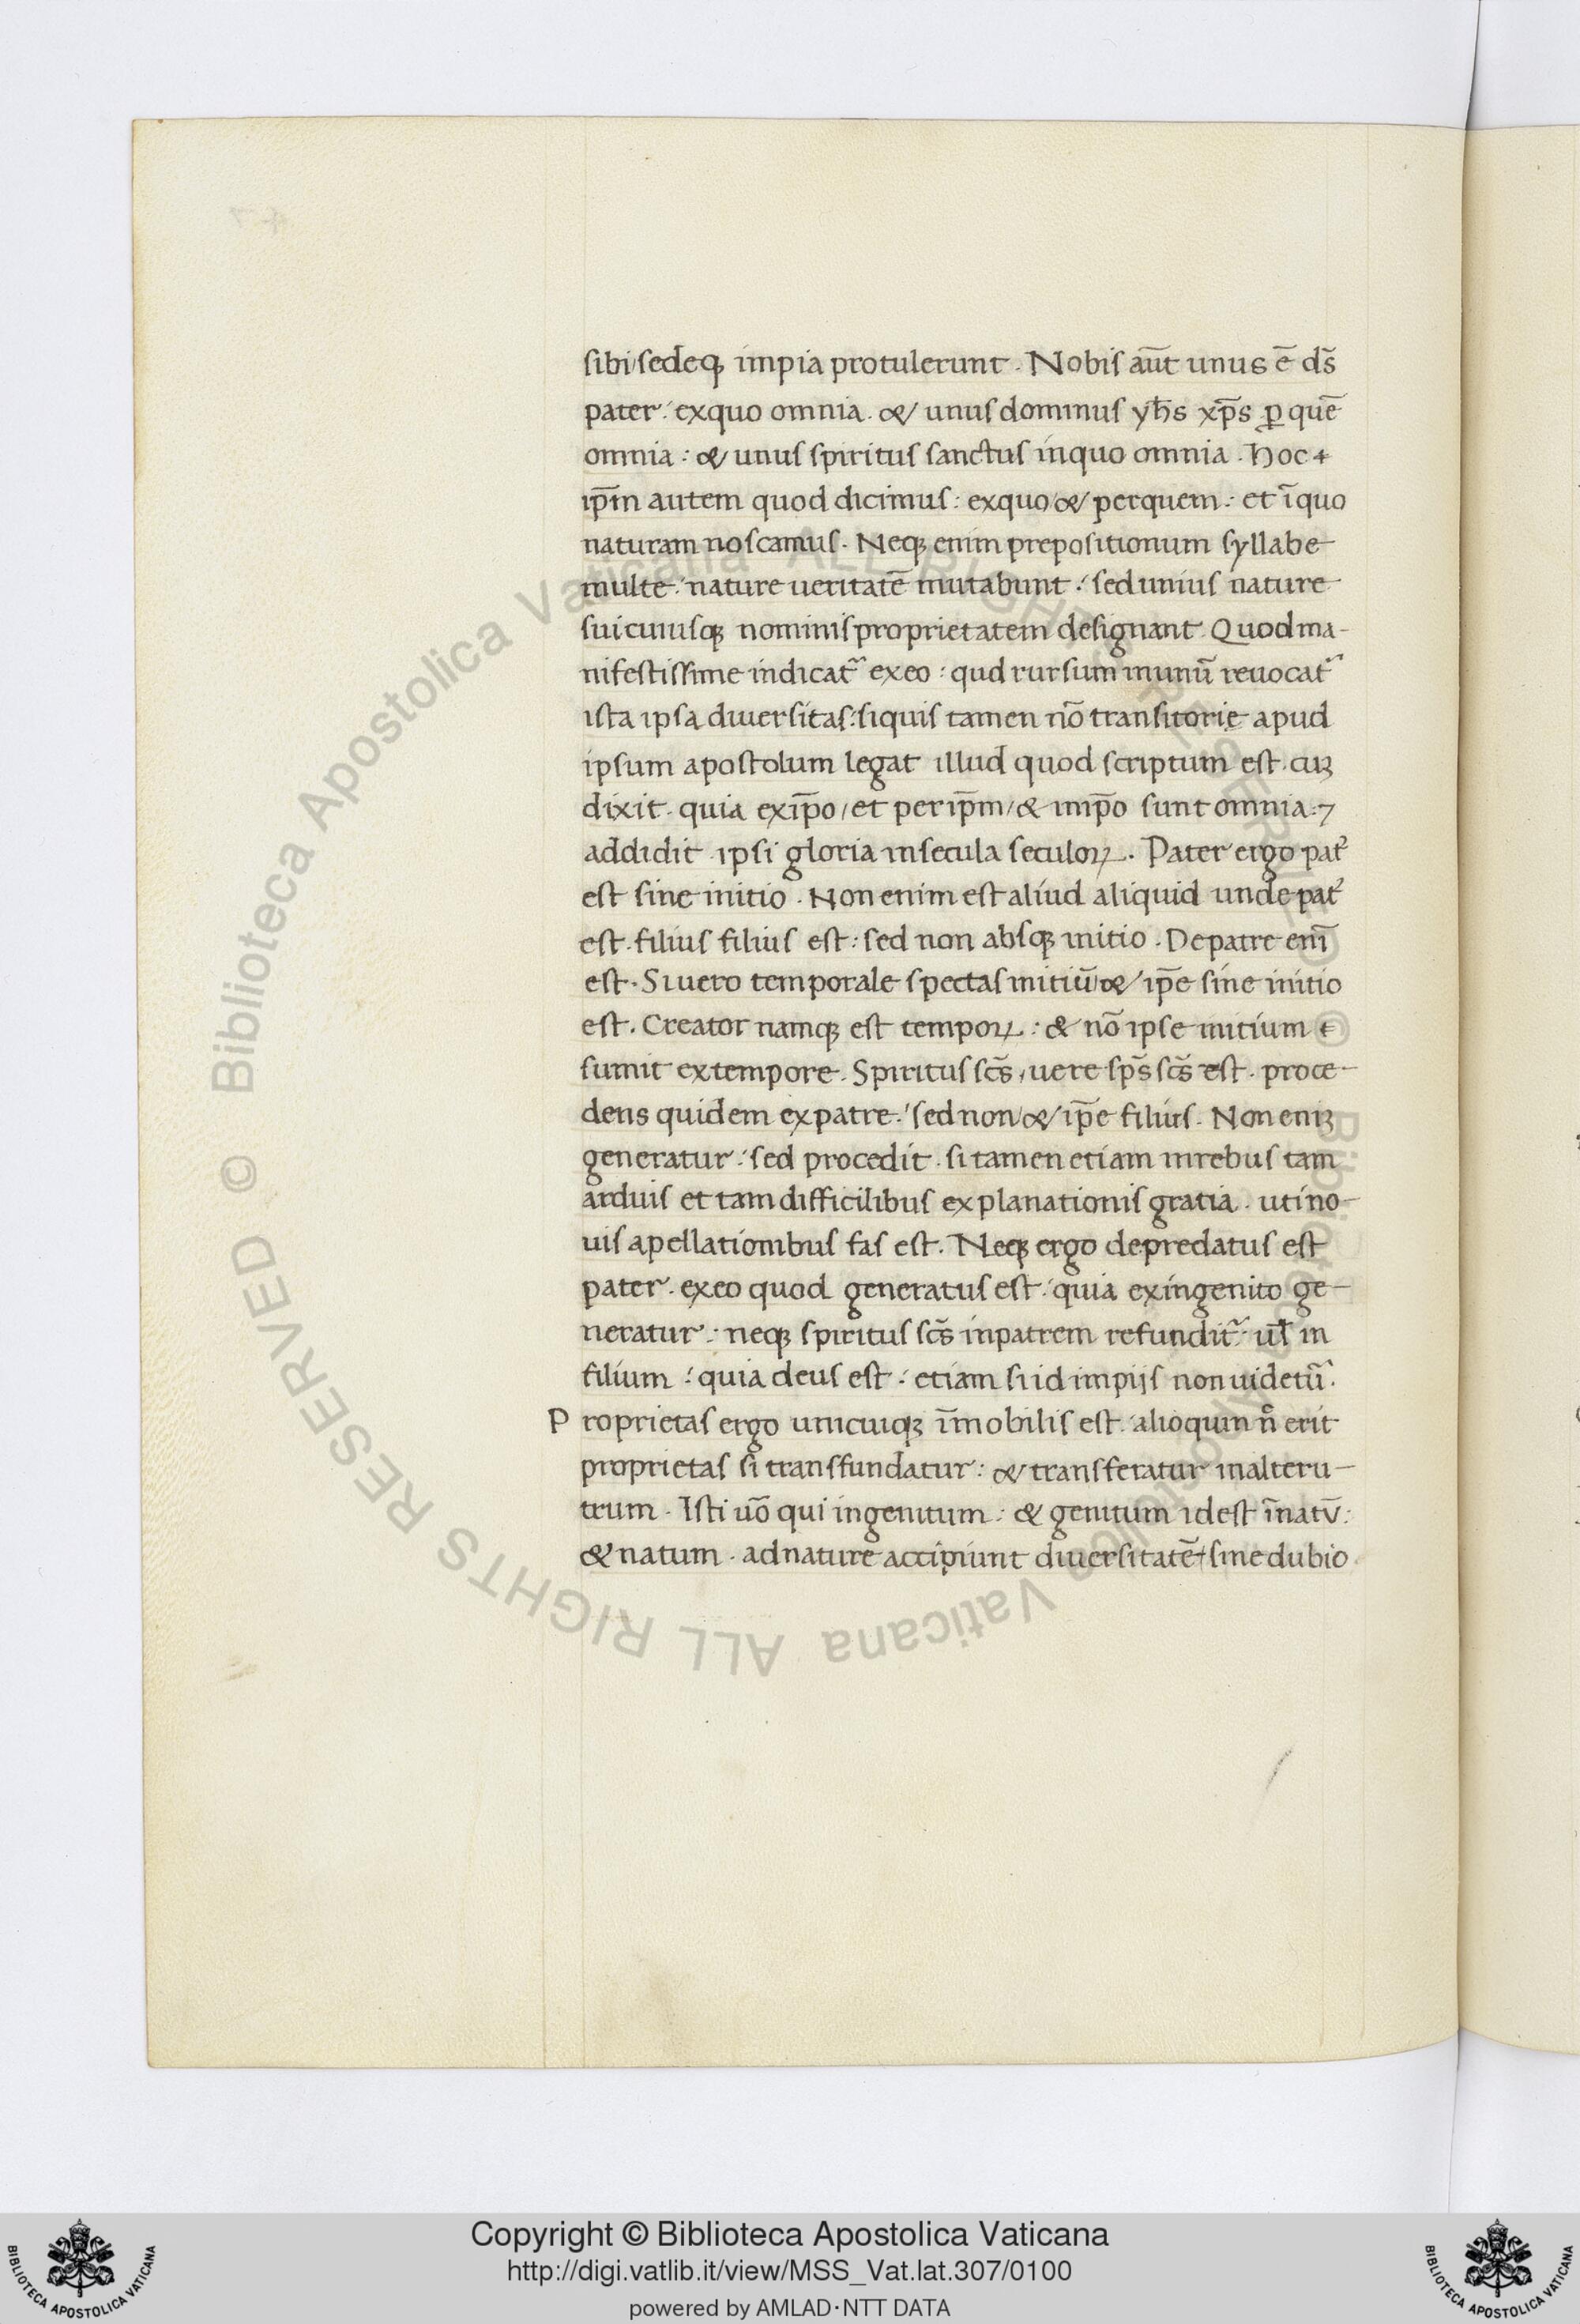 sibi sedeqꝫ impia protulerunt. Nobis aut̄ unus ē ds̄
pater: exquo omnia. & unus dominus yh̄s xp̄s ꝑ quē
omnia: & unus spiritus sanctus inquo omnia. hoc
ip̄m autem quod dicimus: exquo & perquem: et īquo
naturam noscamus. Neqꝫ enim prepositionum syllabe
multe: nature ueritatē mutabunt: sed unius nature
sui cuiusqꝫ nominis proprietatem designant. Quod ma-
nifestissime indicat᷑ exeo: qud rursum inunū reuocat᷑
ista ipsa diuersitas: siquis tamen nō transitorie apud
ipsum apostolum legat illud quod scriptum est. cuꝫ
dixit. quia exip̄o/ et per ip̄m/ & inip̄o sunt omnia: ⁊
addidit ipsi gloria insecula seculoꝝ. Pater ergo pat᷑
est sine initio. Non enim est aliud aliquid unde pat᷑
est. filius filius est: sed non absqꝫ initio. Depatre eni᷑
est. Si uero temporale spectas initiū & ip̄e sine initio
est. Creator namqꝫ est tempoꝝ: & nō ipse initium
sumit extempore. Spiritus scs̄, uere sps̄ scs̄ est. proce-
dens quidem expatre: sed non & ip̄e filius. Non eniꝫ
generatur: sed procedit. si tamen etiam inrebus tam
arduis et tam difficilibus explanationis gratia. uti no-
uis apellationibus fas est. Neqꝫ ergo depredatus est
pater. exeo quod generatus est: quia exingenito ge-
neratur: neqꝫ spiritus scs̄ inpatrem refundit᷑: ul̄ in
filium: quia deus est: etiam si id impijs non uidetu᷑.
Proprietas ergo unicuiqꝫ īmobilis est. alioquin n̄ erit
proprietas si transfundatur: & transferatur inalteru-
trum. Isti uō qui ingenitum: & genitum idest īnatū:
& natum. adnature accipiunt diuersitatē sine dubio
Copyright © Biblioteca Apostolica Vaticana
http://digi.vatlib.it/view/MSS_Vat.lat.307/0100
powered by AMLAD·NTT DATA
BIBLIOTECA APOSTOLICA VATICANA
BIBLIOTECA APOSTOLICA VATICANA
© Biblioteca Apostolica Vaticana ALL RIGHTS RESERVED © Biblioteca Apostolica Vaticana ALL RIGHTS RESERVED